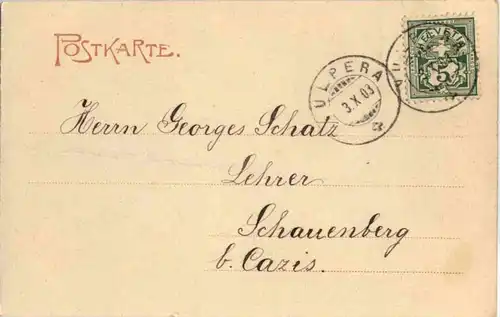 POSTKARTE.
HELVETIA
5
VULPERA
3.X.03
Herrn Georges Schatz
Lehrer
Schauenberg
b. Cazis.